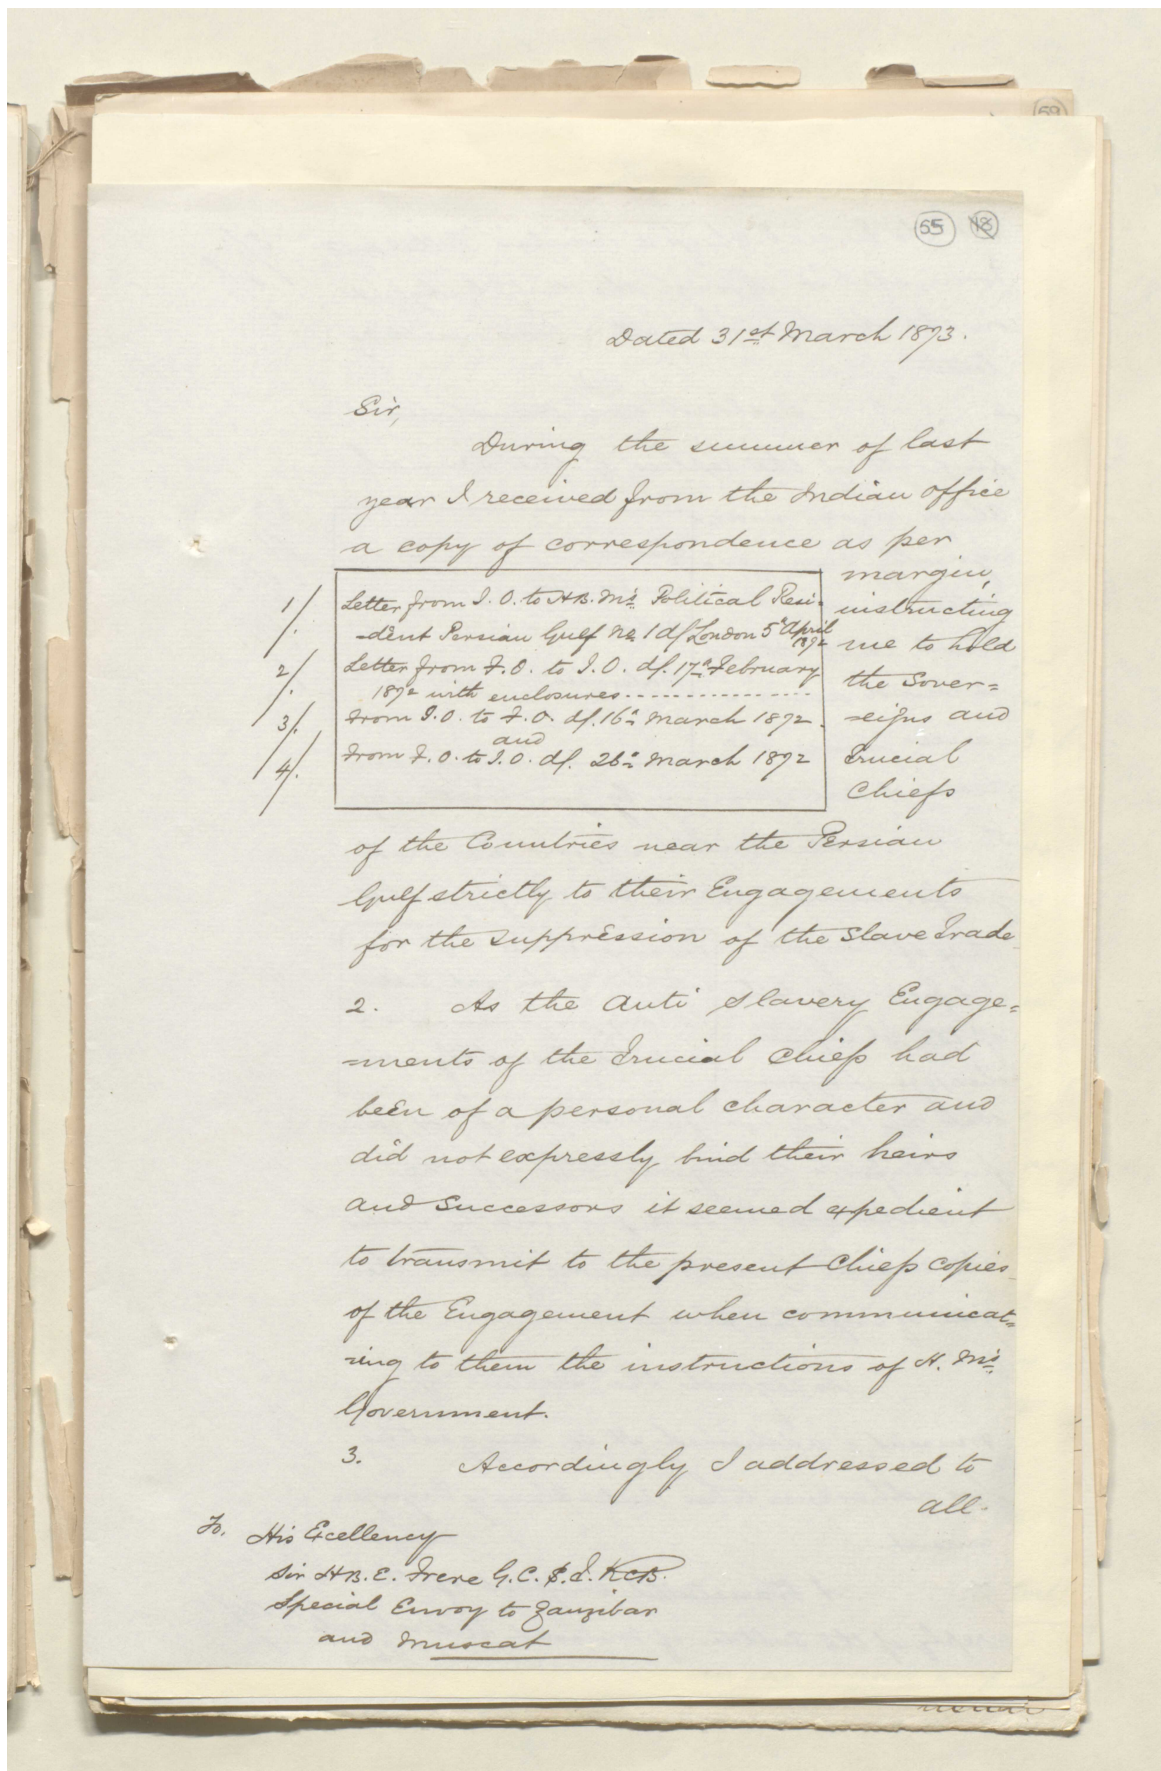 59
55 18
Dated 31st March 1873.
Sir,
During the summer of last
year I received from the Indian office
a copy of correspondence as per
margin,
instructing
me to hold
the Sover=
=eigns and
Trucial
Chiefs
1/. Letter from I. O. to H.B.M's Political Resi-
-dent Persian Gulf No 1 d/ London 5th April
1872
2/. Letter from F. O. to I. O. d/. 17th February
1872 with enclosures
3/. From I. O. to F. O. d/. 16th March 1872.
and
4/. From F. O. to I. O. d/. 26th March 1872
of the Countries near the Persian
Gulf strictly to their Engagements
for the suppression of the Slave Trade
2. As the Anti Slavery Engage=
=ments of the Trucial Chiefs had
been of a personal character and
did not expressly bind their heirs
and Successors it seemed expedient
to transmit to the present Chiefs copies
of the Engagement when communicat=
=ing to them the instructions of H. M's
Government.
3. Accordingly I addressed to
all-
To. His Excellency
Sir H.B.E. Frere G.C.S.I. KCB.
Special Envoy to Zanzibar
and Muscat